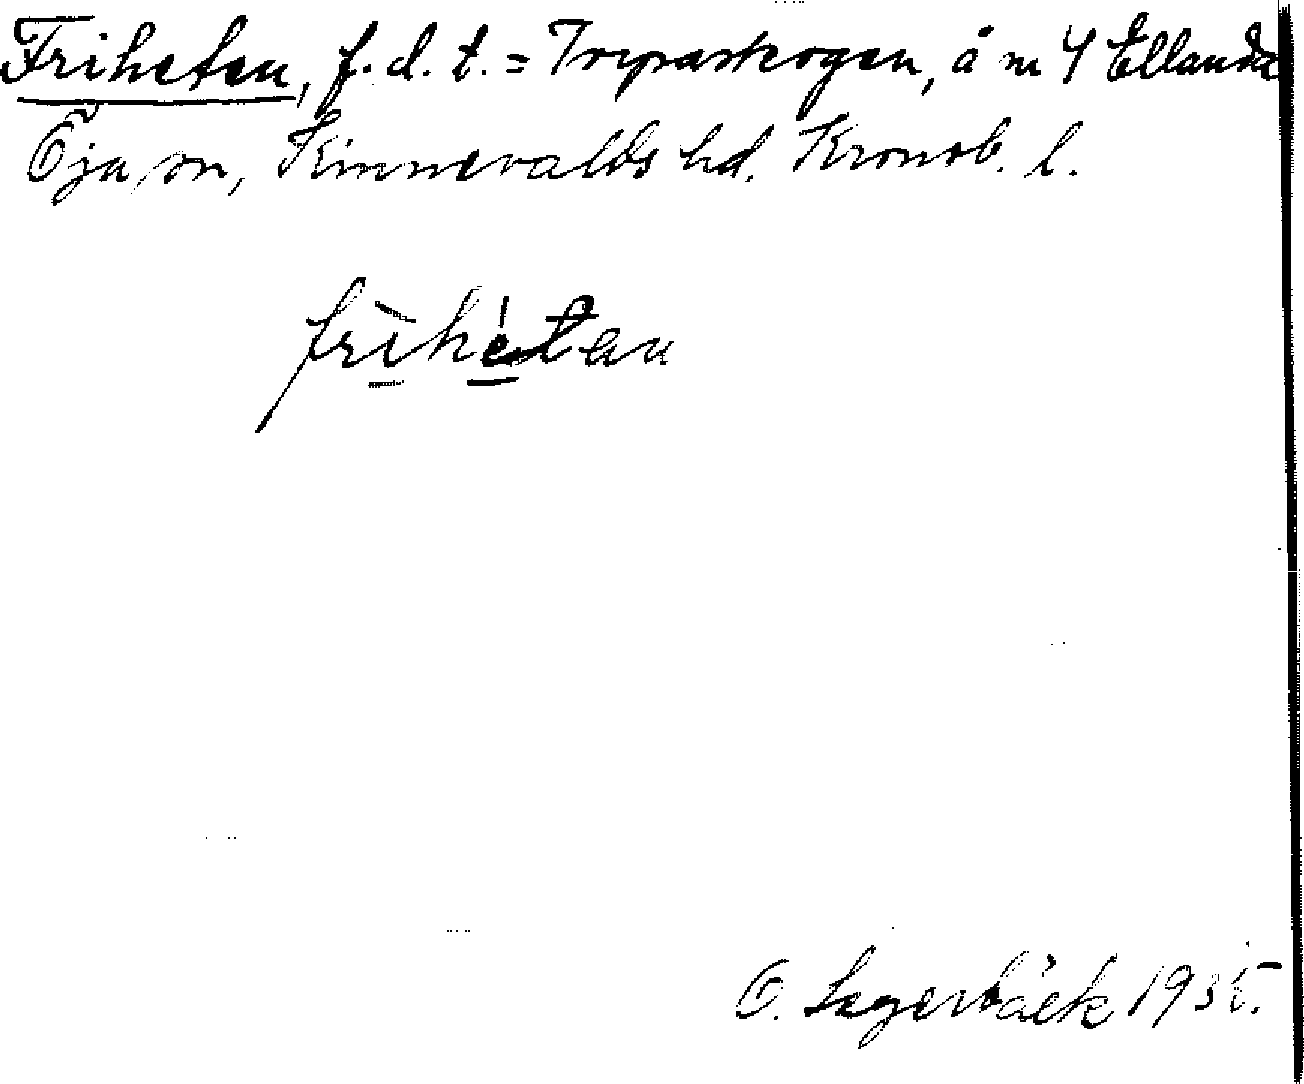 Friheten, f.d. t. = Trypaskogen, å n 4 Ellanda
Öja sn, Kinnevalds hd. Kronob. l.
frìhétan
O. Lagerbäck 1935.